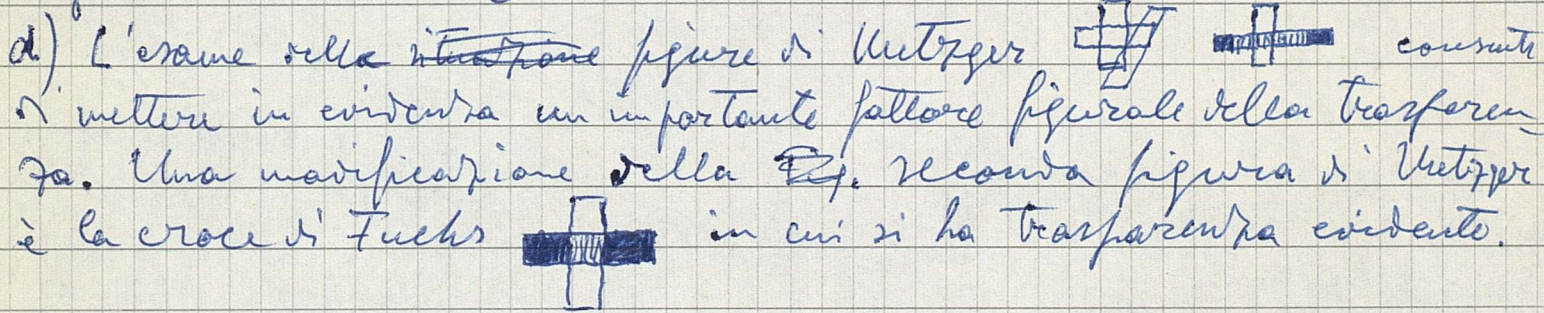 d) L'esame delle situazione figure di Metzger consente
di mettere in evidenza un importante fattore figurale della trasparen-
za. Una modificazione della Fig. seconda figura di Metzger
è la croce di Fuchs in cui si ha trasparenza evidente.